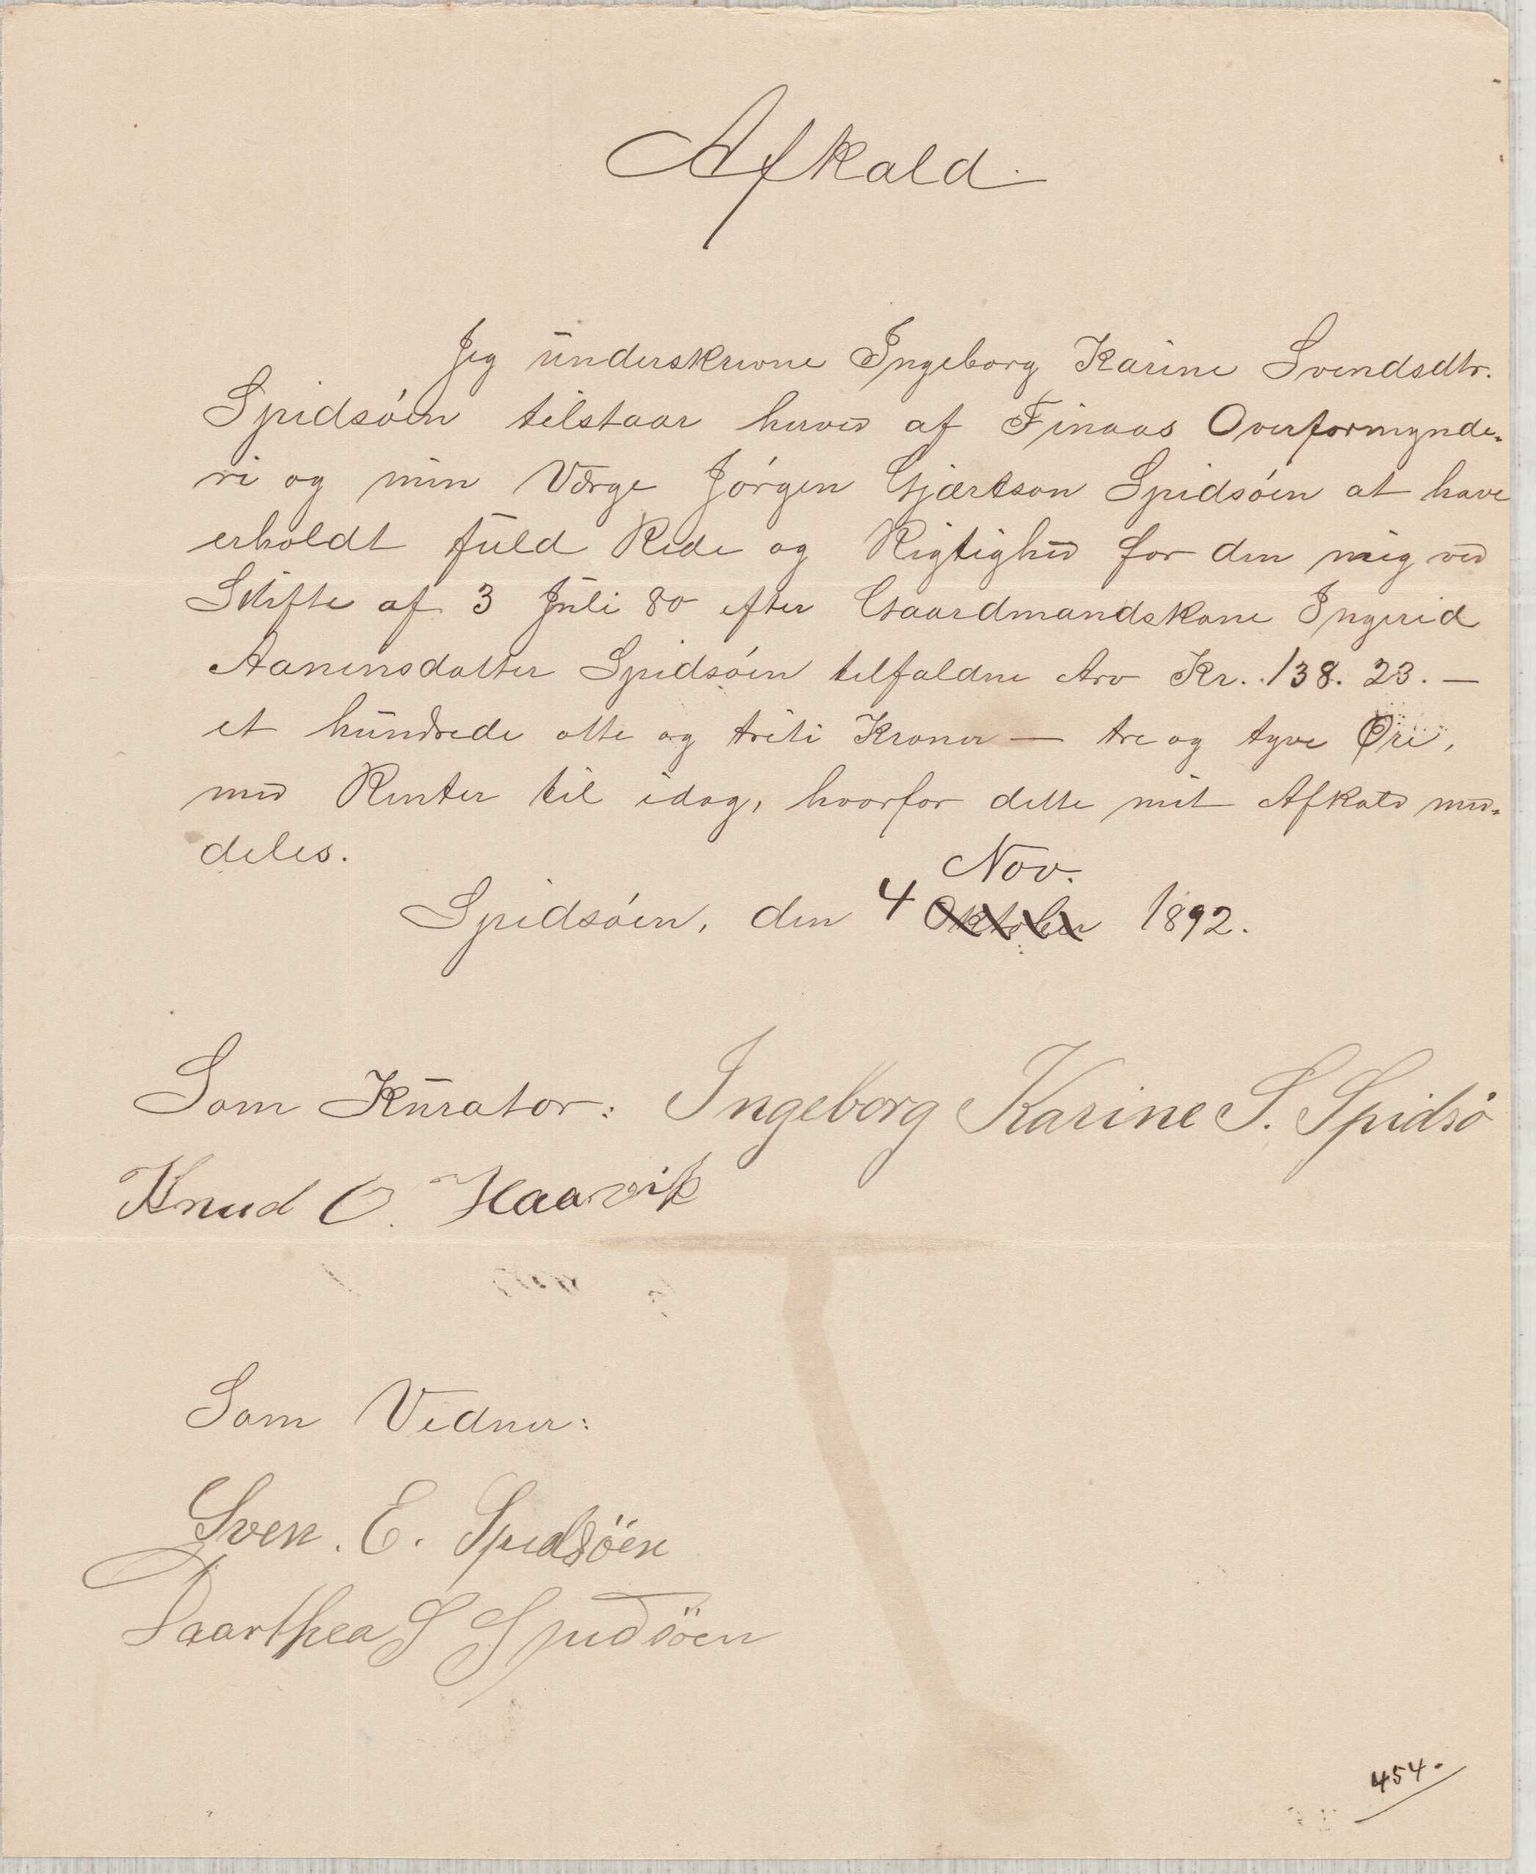 Afkald.
Jeg underskrevne Ingeborg Karine Svendsdtr.
Spidsöen tilstaar herved af Finaas Overformynde-
ri og min Værge Jörgen Gjærtson Spidsöen at have
erholdt fuld Rede og Rigtighed for den mig ved
Skifte af 3 Juli 80 efter Gaardmandskone Ingerid
Aanensdatter Spidsöen tilfaldne Arv Kr. 138. 23. —
et hundrede otte og triti Kroner — tre og tyve Øre,
med Renter til idag, hvorfor dette mit Afkald med-
deles.
Nov.
Spidsöen, den 4 Oktober 1892.
Som Kurator: Ingeborg Karine S. Spidsö
Knud O. Haavik
Som Vedner:
Sven. E. Spidsöen
Daarthea S Spidsöen
454.